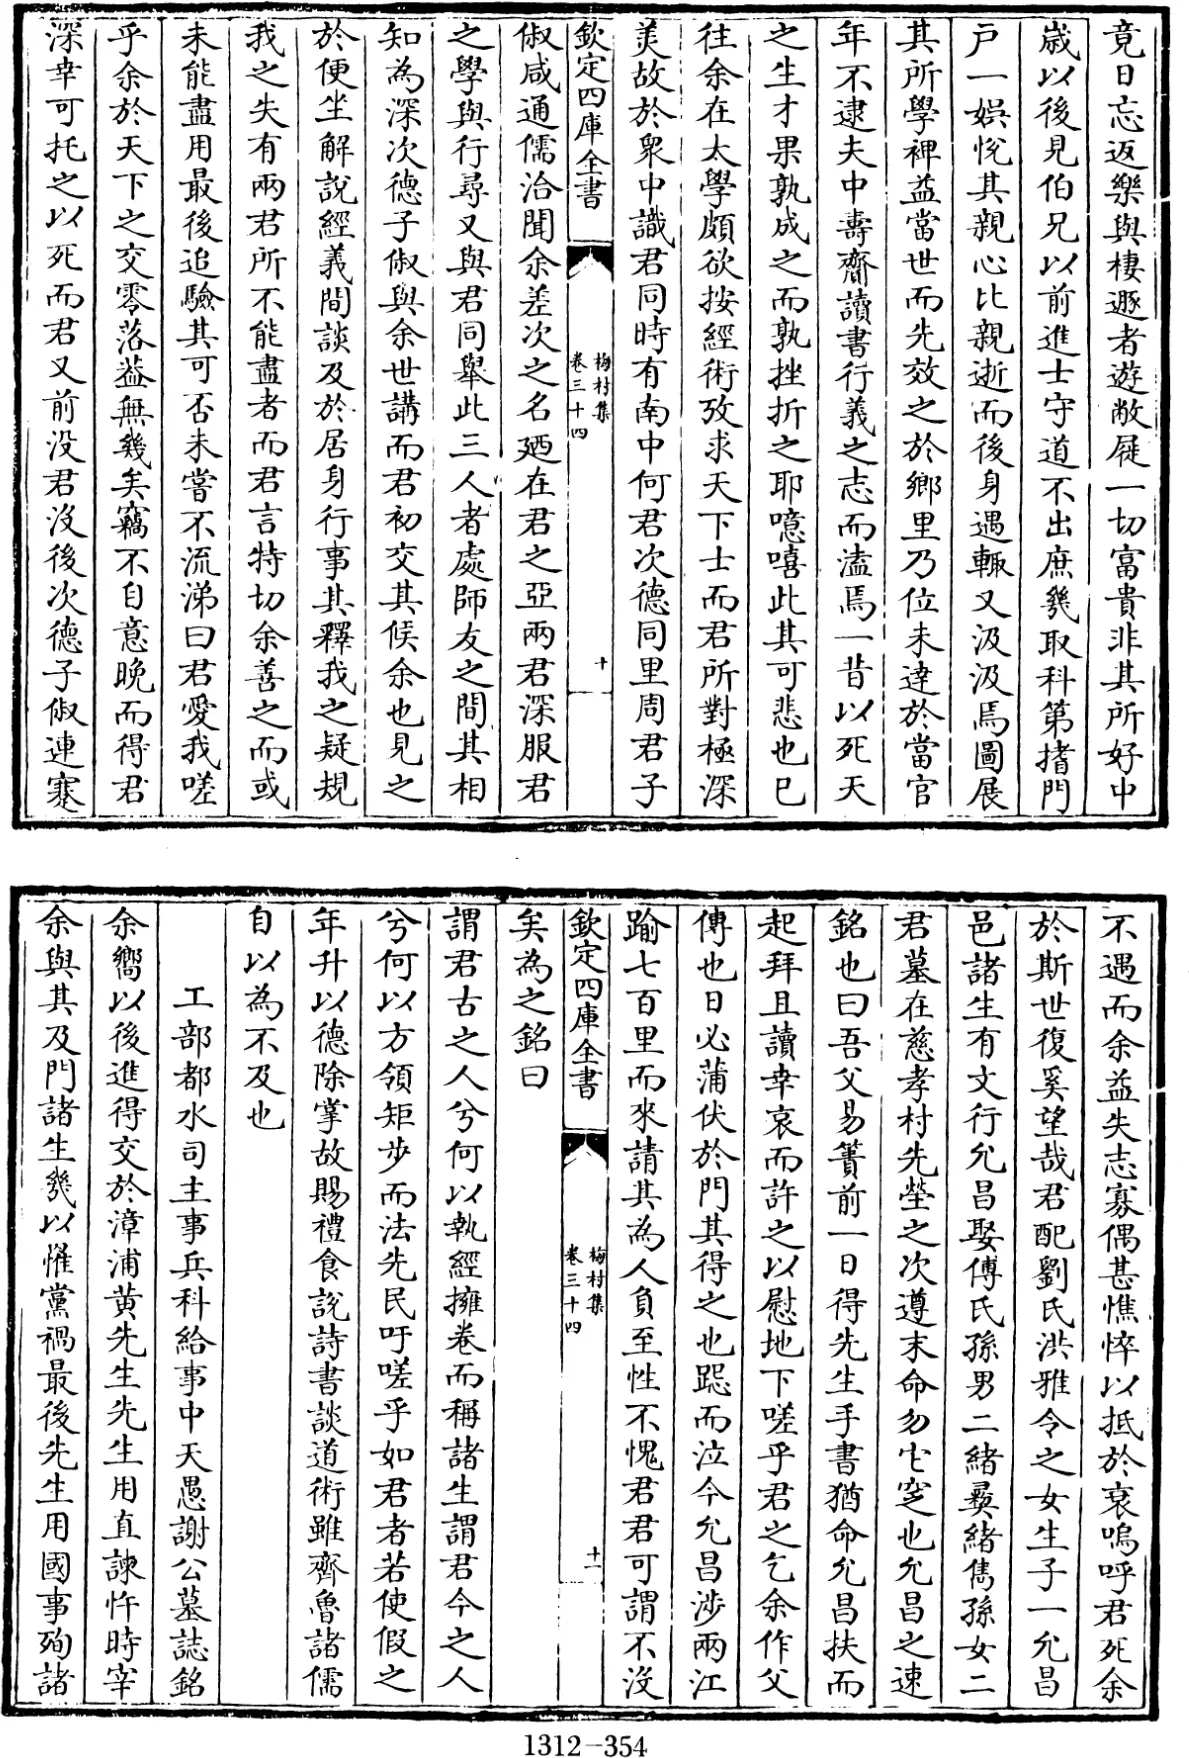 竟日忘返樂與棲遯者遊敝屣一切富貴非其所好中
歲以後見伯兄以前進士守道不出庶幾取科第搘門
戶一娛悅其親心比親逝而後身遇輙又汲汲焉圖展
其所學裨益當世而先效之於鄉里乃位未達於當官
年不逮夫中壽齎讀書行義之志而溘焉一昔以死天
之生才果孰成之而孰挫折之耶噫嘻此其可悲也已
往余在太學頗欲按經術攷求天下士而君所對極深
美故於衆中識君同時有南中何君次德同里周君子
欽定四庫全書
梅村集
卷三十四
十
俶咸通儒洽聞余差次之名廼在君之亞兩君深服君
之學與行尋又與君同舉此三人者處師友之間其相
知為深次德子俶與余世講而君初交其候余也見之
於便坐解說經義間談及於居身行事其釋我之疑規
我之失有兩君所不能盡者而君言特切余善之而或
未能盡用最後追驗其可否未嘗不流涕曰君愛我嗟
乎余於天下之交零落葢無幾矣竊不自意晚而得君
深幸可托之以死而君又前没君沒後次德子俶連蹇
不遇而余益失志寡偶甚憔悴以抵於衰嗚呼君死余
於斯世復奚望哉君配劉氏洪雅令之女生子一允昌
邑諸生有文行允昌娶傅氏孫男二緒彞緒儁孫女二
君墓在慈孝村先塋之次遵末命勿它窆也允昌之速
銘也曰吾父易簀前一日得先生手書猶命允昌扶而
起拜且讀幸哀而許之以慰地下嗟乎君之乞余作父
傳也日必蒲伏於門其得之也跽而泣今允昌涉兩江
踰七百里而來請其為人負至性不愧君君可謂不沒
欽定四庫全書
梅村集
卷三十四
十一
矣為之銘曰
謂君古之人兮何以執經擁卷而稱諸生謂君今之人
兮何以方領矩步而法先民吁嗟乎如君者若使假之
年升以德除掌故賜禮食說詩書談道術雖齊魯諸儒
自以為不及也
工部都水司主事兵科給事中天愚謝公墓誌銘
余嚮以後進得交於漳浦黄先生先生用直諫忤時宰
余與其及門諸生幾以惟黨禍最後先生用國事殉諸
1312-354